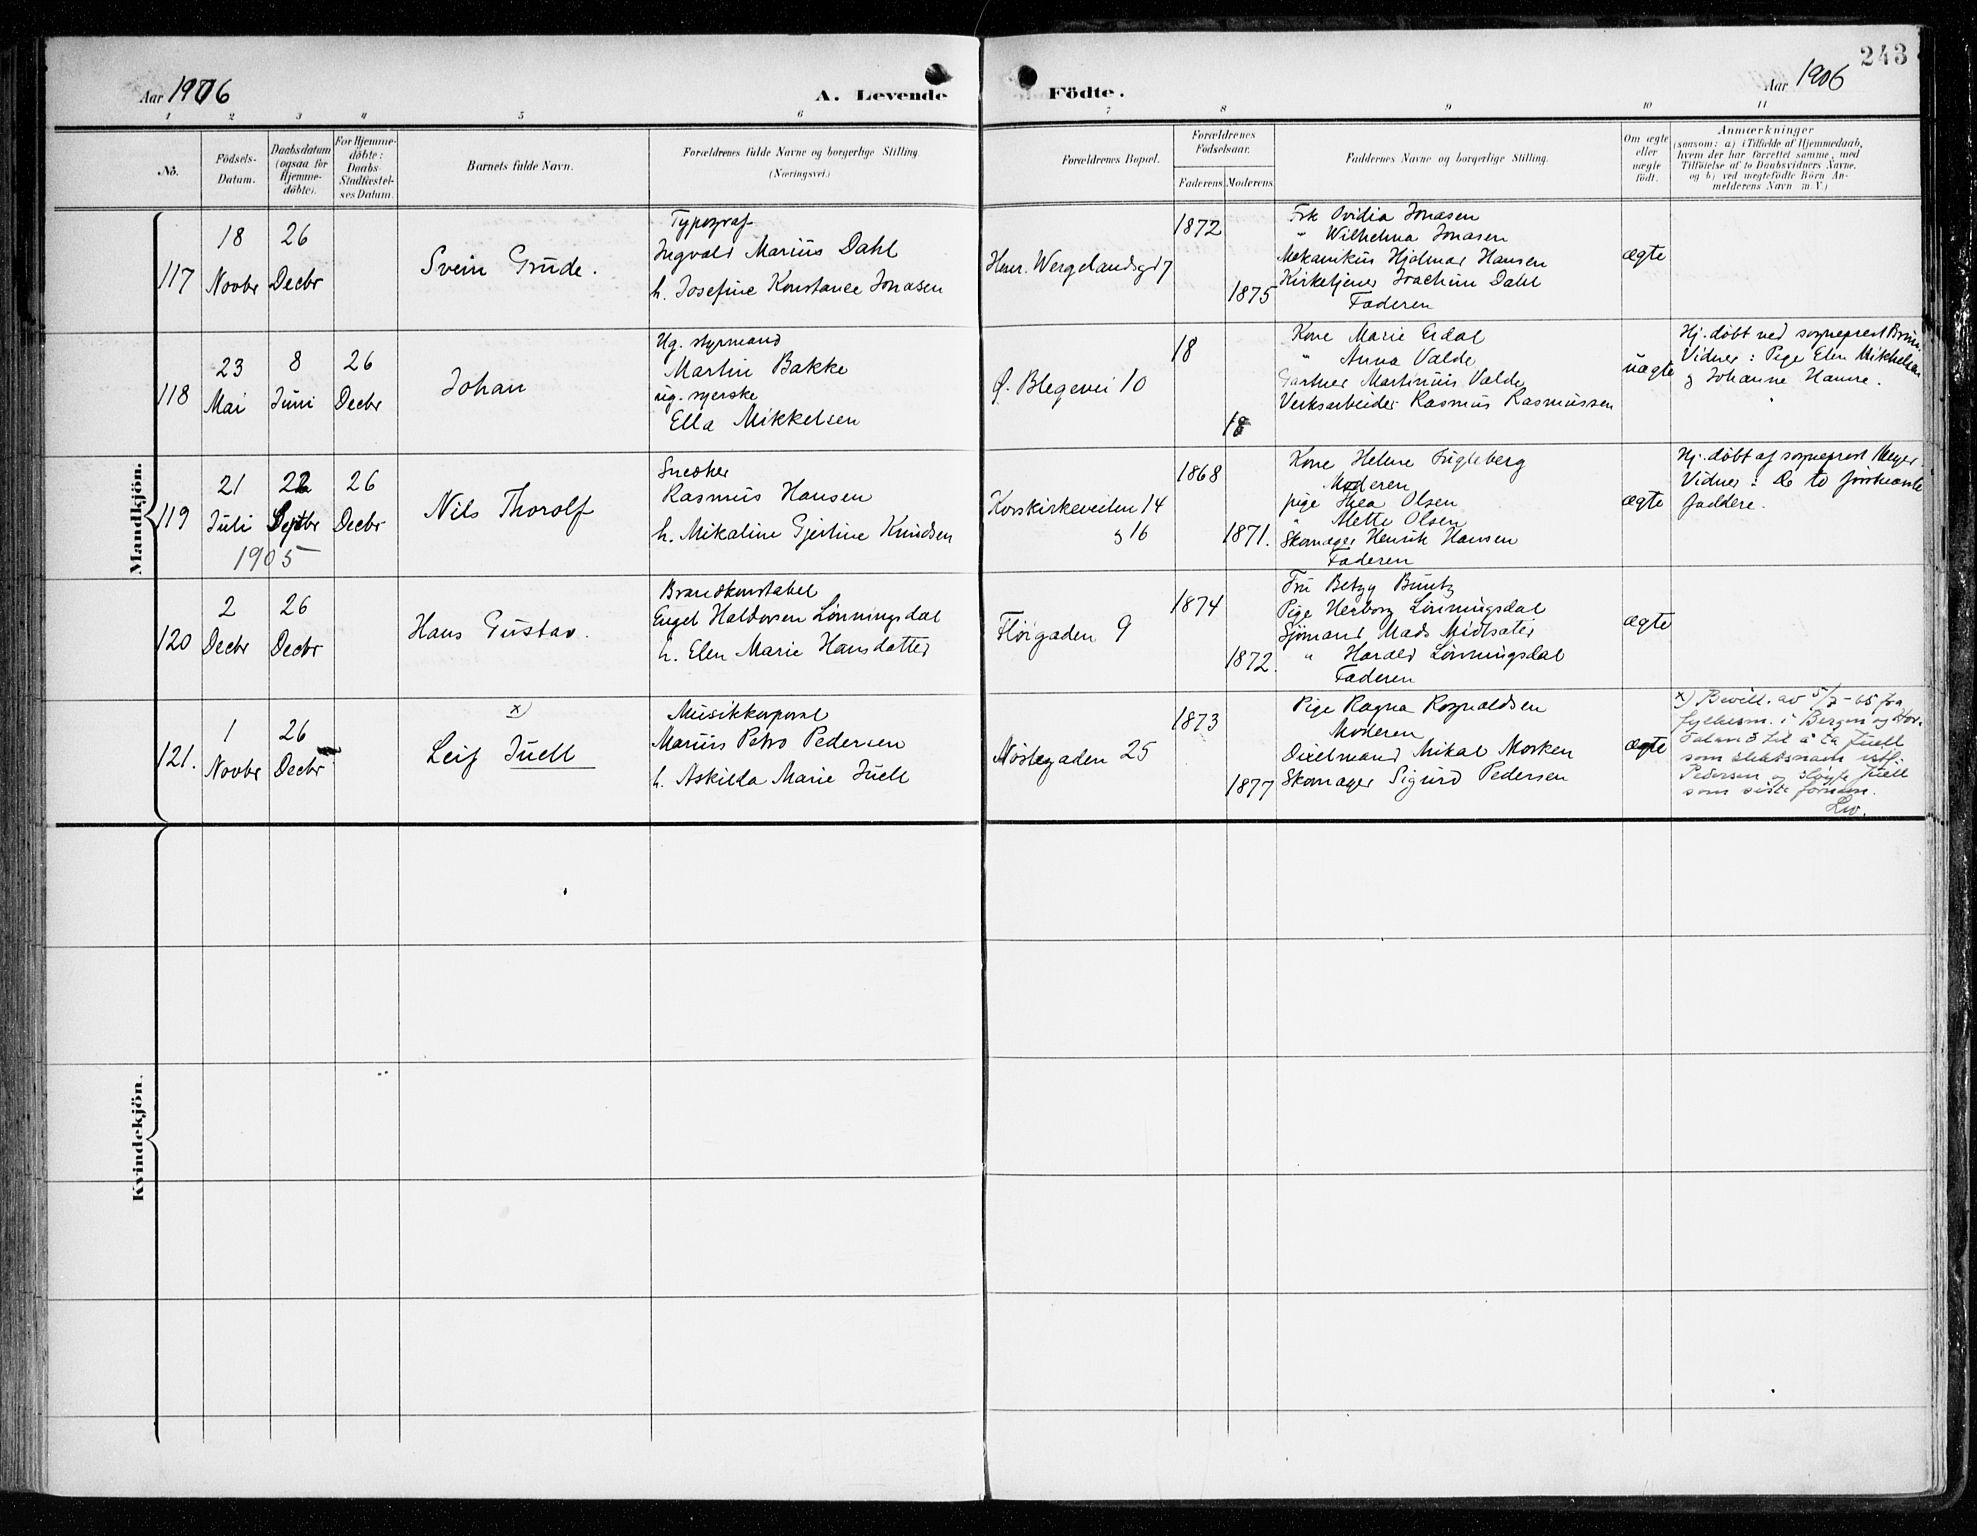 243
Aar 1906
A. Levende
Födte.
Aar 1906
1 2 3 4 5 6 7 8 9 10 11
No.
Födsels-Datum.
Daabsdatum (ogsaa for Hjemme-døbte).
For Hjemme-døbte: Daabs Stadfæstel-ses Datum.
Barnets fulde Navn.
Forældrenes fulde Navne og borgerlige Stilling
(Næringsvei.)
Forældrenes Bopæl.
Forældrenes Födselsaar.
Faderens Moderens
Faddernes Navne og borgerlige Stilling.
Om ægte eller uægte født.
Anmærkninger
(saasom: a) i Tilfælde af Hjemmedaab,
hvem der har forrettet samme, med
Tilföielse af to Daabsvidners Navne.
og b) ved uægtefödte Börn An-
melderens Navn m. V.)
Mandkjön.
117
18 Novbr
26 Decbr
Svein Grude.
Typograf
Ingvald Marius Dahl
h. Josefine Konstance Jonasen
Henr. Wergelandsgd 7
1872
1875
Frk Ovidia Jonasen
" Wilhelma Jonasen
Mekanikus Hjalmar Hansen
Kirketjener Joachim Dahl
Faderen
ægte
118
23 Mai
8 Juni
26 Decbr
Johan
Ug. styrmand
Martin Bakke
ug. syerske
Ella Mikkelsen
Ø. Blegevei 10
18
18
Kone Marie Eidal
" Anna Valde
Gartner Martinius Valde
Verksarbeider Rasmus Rasmussen
uægte
Hj. døbt ved sogneprest
Vidner: Pige Elen Mikkelsen
og Johanne
119
21 Juli
22 Septbr
1905
26 Decbr
Nils Thorolf
Snedker
Rasmus Hansen
h. Mikaline Gjertine Knudsen
Korskirkeveiten 14
og 16
1868
1871.
Kone Helene Fugleberg
Moderen
pige Thea Olsen
" Mette Olsen
Skomager Henrik Hansen
Faderen
ægte
Hj. døbt af sogneprest Meyer.
Vidner: De to førstnævnte
faddere.
120
2 Decbr
26 Decbr
Hans Gustav.
Brandkonstabel
Engel Haldorsen Lønningsdal
h. Elen Marie Hansdatter
Fløigaden 9
1874
1872.
Fru Betzy Buntz
Pige Herborg Lønningsdal
Sjömand Mads Midtsæter
" Harald Lønningsdal
Faderen
ægte
121.
1 Novbr
26 Decbr
x)
Leif Juell
Musikkorporal
Marius Petro Pedersen
h. Askilda Marie Juell
Nøstegaden 25
1873
1877
Pige Ragna Rognaldsen
Moderen
Dixelmand Mikal Morken
Skomager Sigurd Pedersen
ægte
x) Bevill. av 5/7-65 fra
fylkesm. i Bergen og Hor-
daland til å ta Juell
som slektsnavn istf.
Pedersen og sløyfe Juell
som siste fornavn.
Kvindekjön.